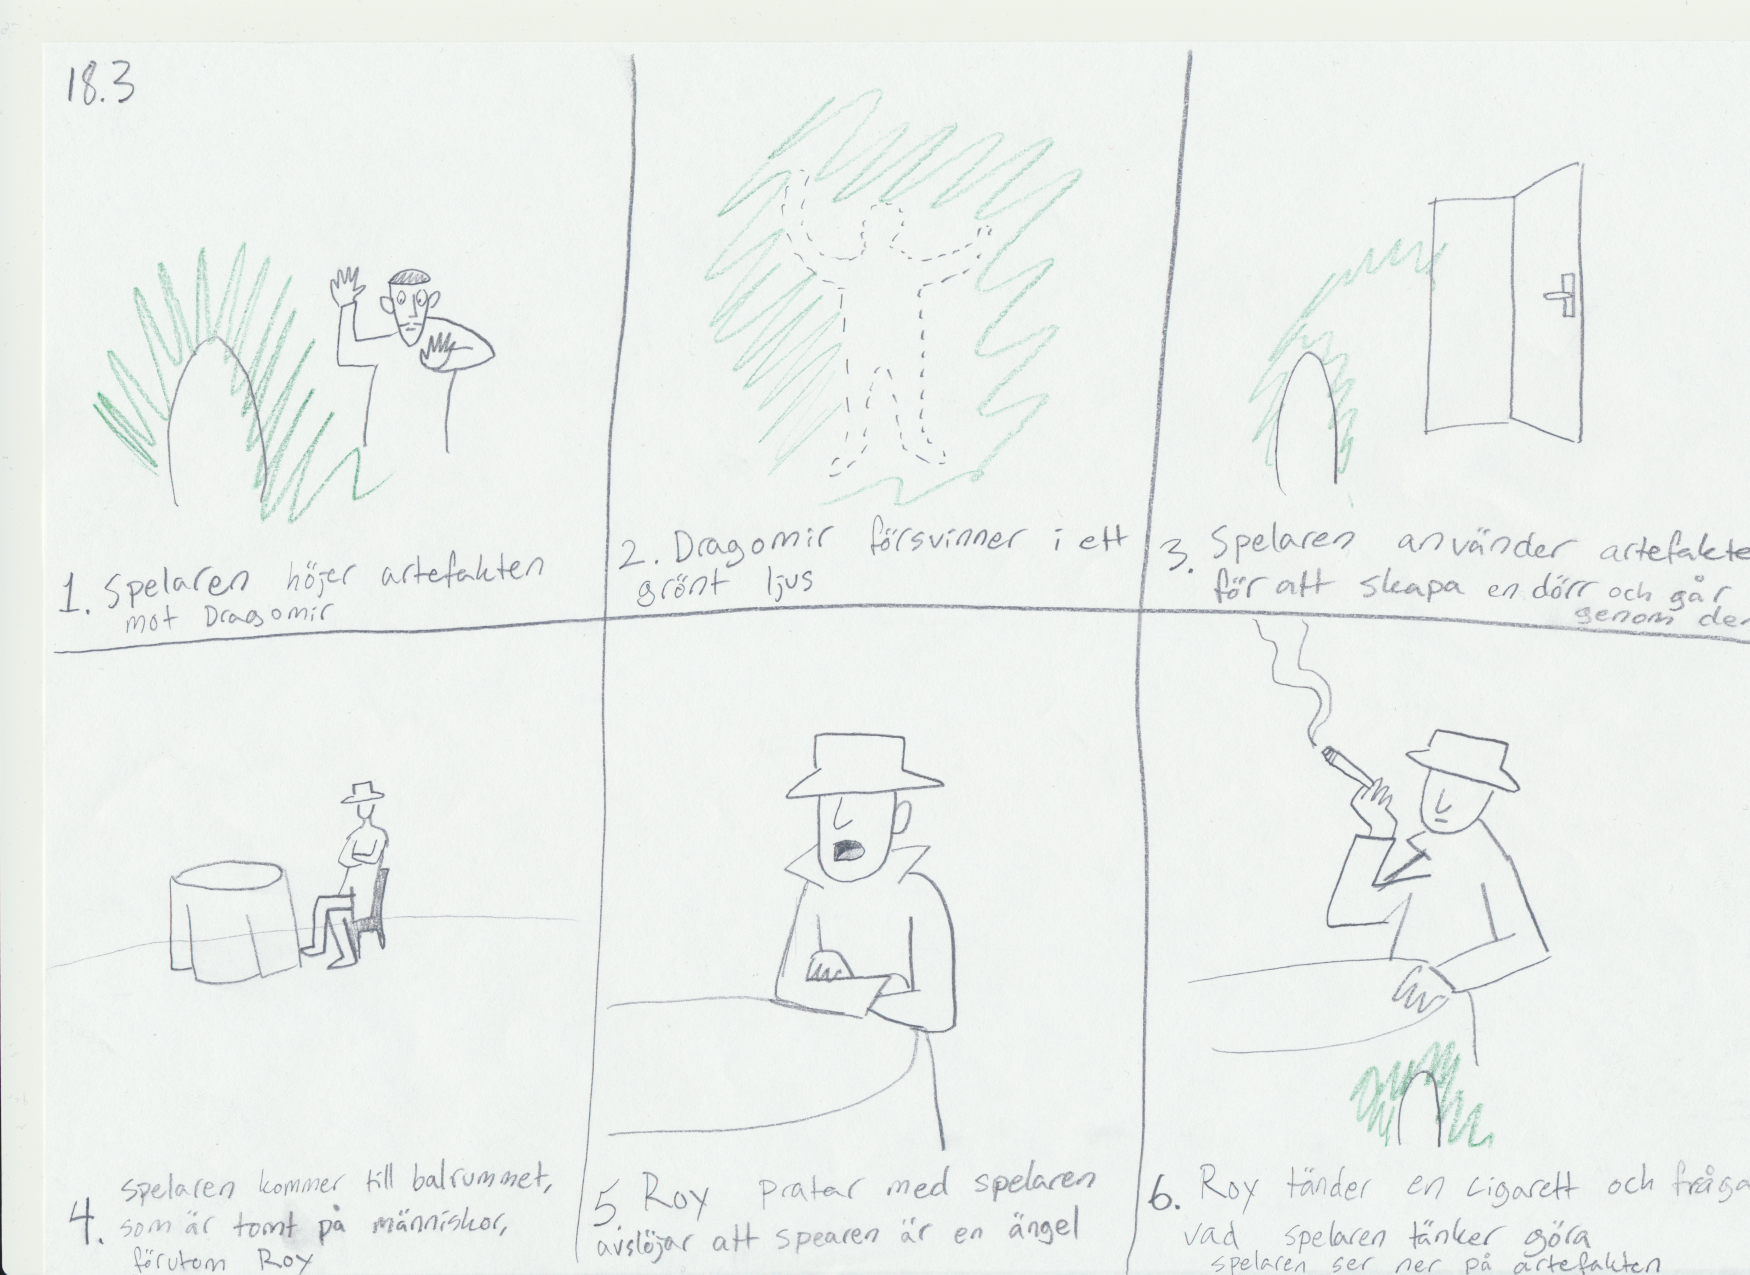 18.3
1. Spelaren höjer artefakten
mot Dragomir
2. Dragomir försvinner i ett
grönt ljus
3. Spelaren använder artefakte
för att skapa en dörr och går
genom den
4. Spelaren kommer till balrummet,
som är tomt på människor,
förutom Roy
5. Roy pratar med spelaren
avslöjar att spearen är en ängel
6. Roy tänder en cigarett och fråga
vad spelaren tänker göra
spelaren ser ner på artefakten